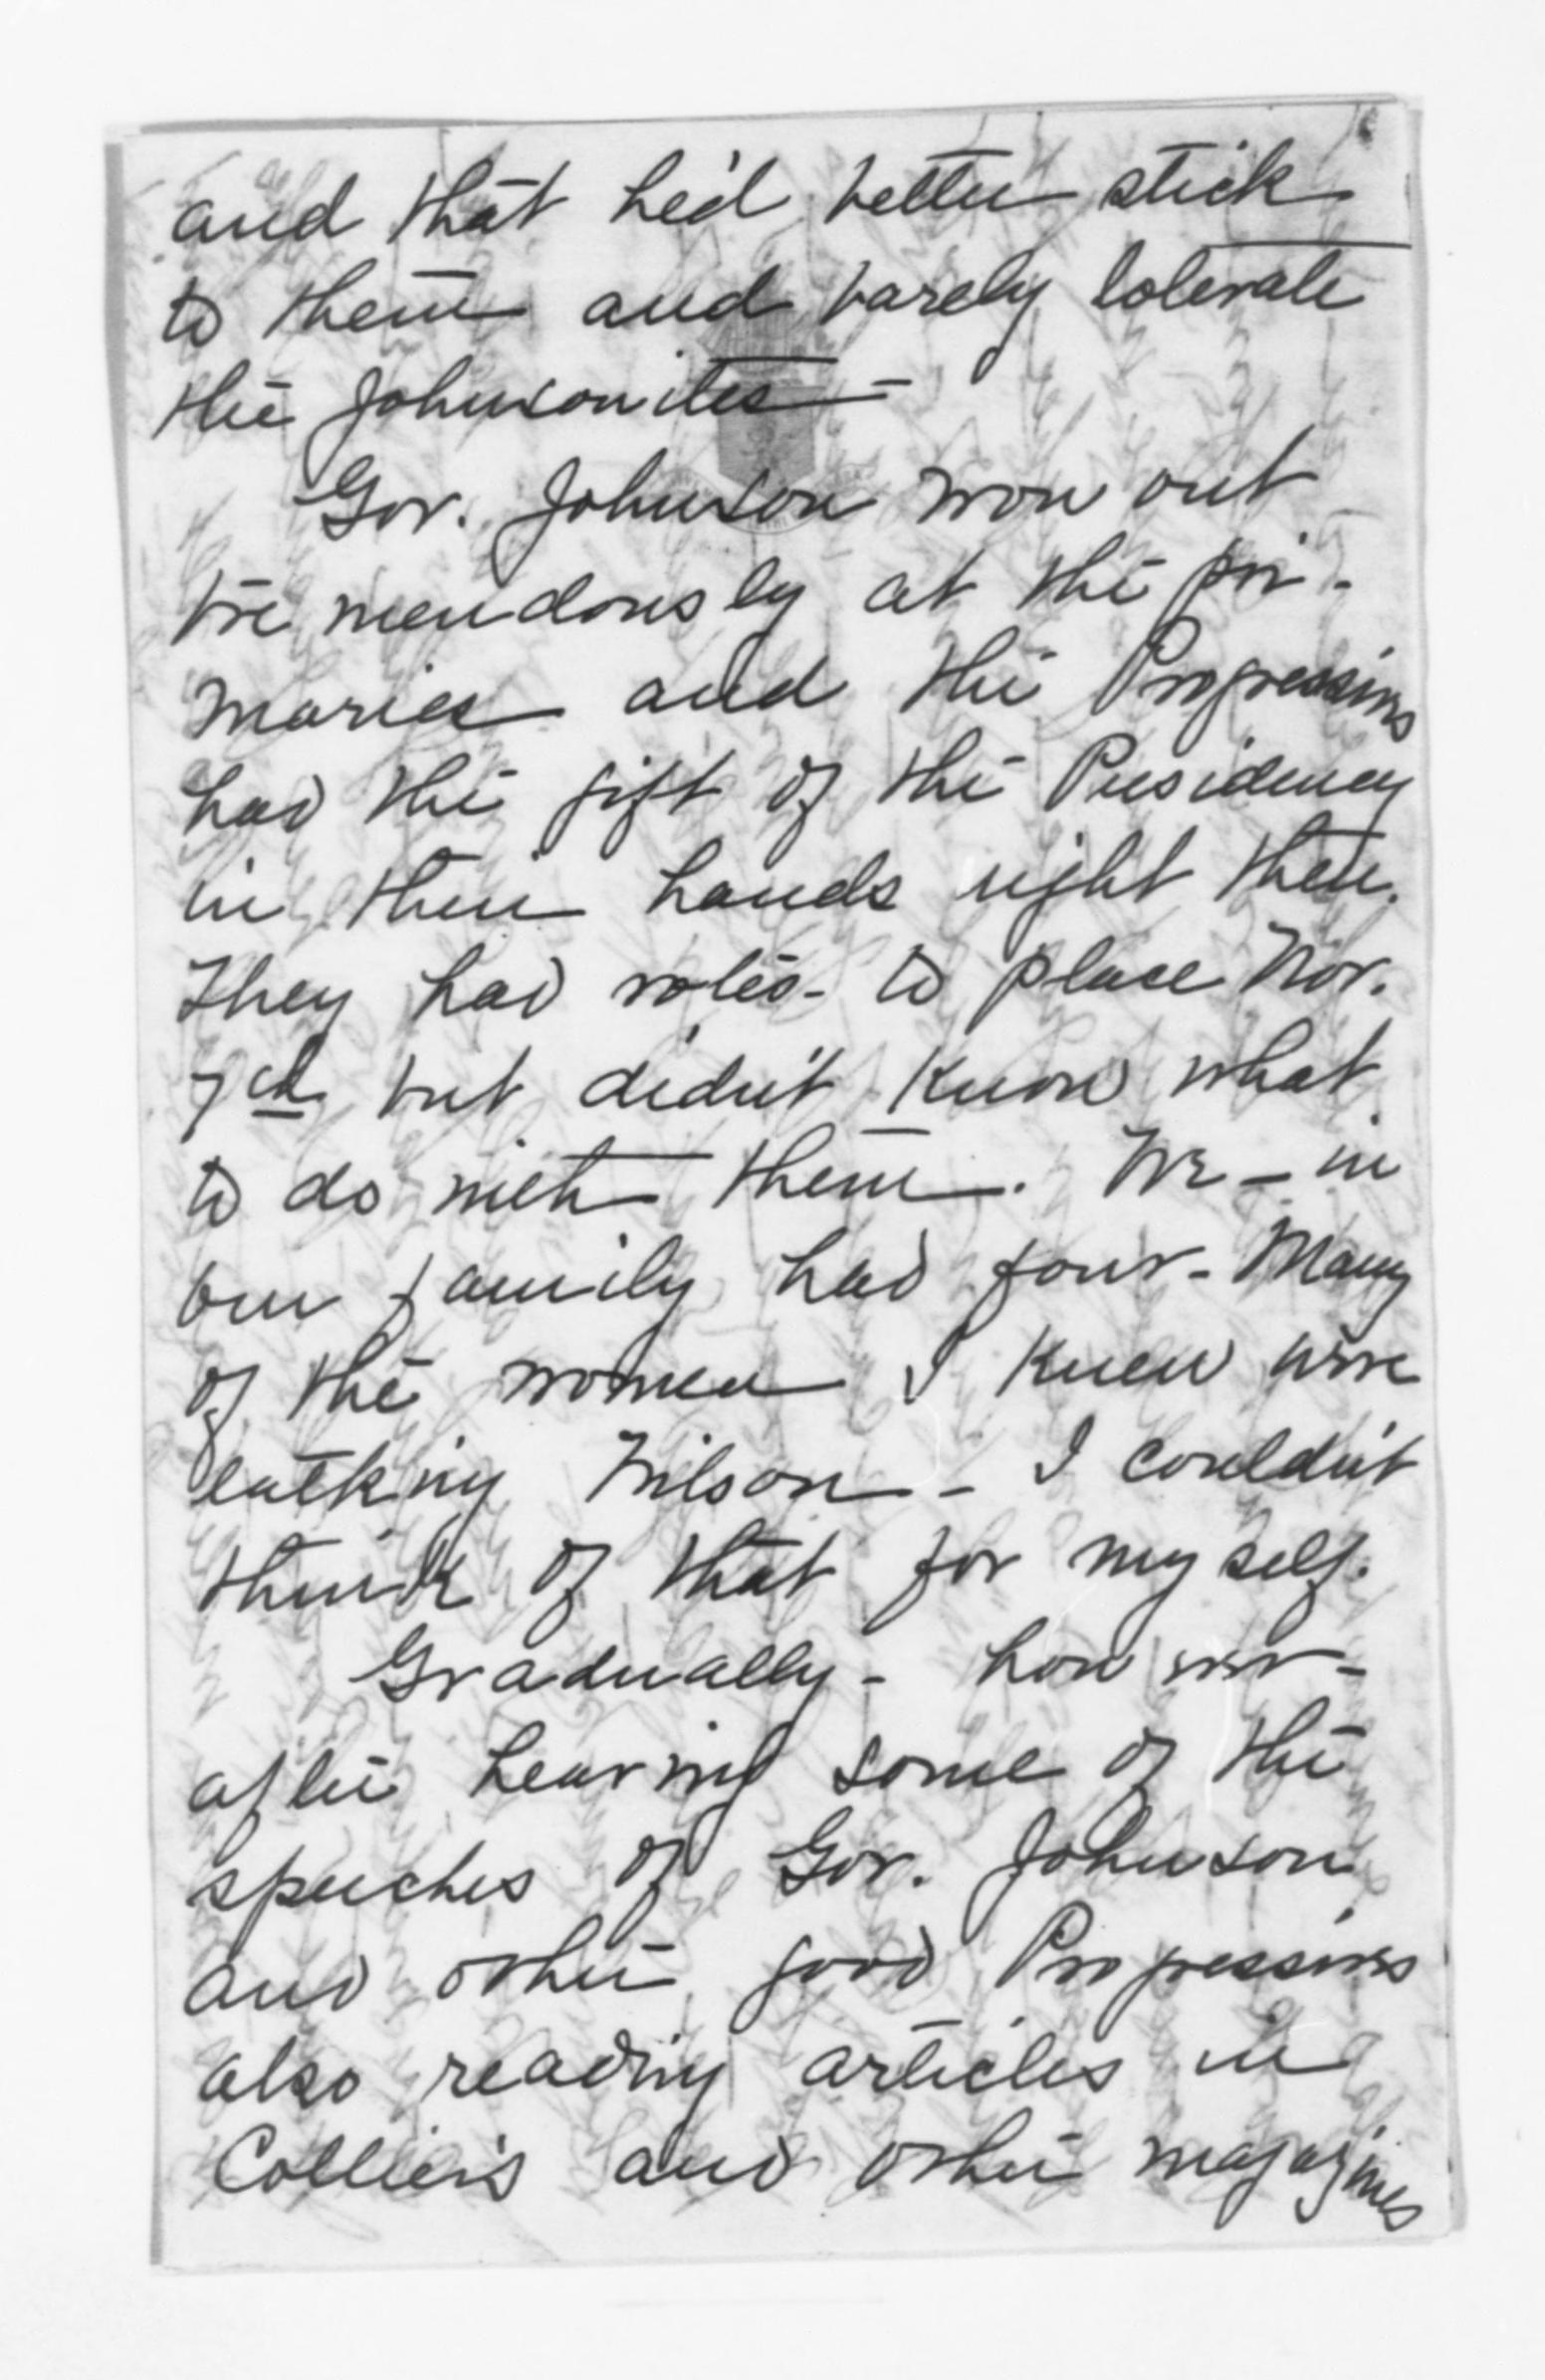 and that he'd better stick
to them and barely tolerate
the Johnsonites –
Gov. Johnson won out
tremendously at the pri-
maries and the Progressives
had the gift of the Presidency
in their hands right then.
They had votes – to place Nov.
7th but didn't know what
to do with them. We – in
our family had four – Many
of the women I knew were
talking Wilson – I couldn't
think of that for myself.
Gradually – however –
after hearing some of the
speeches of Gov. Johnson
and other good Progressives
also reading articles in
Collier's and other magazines